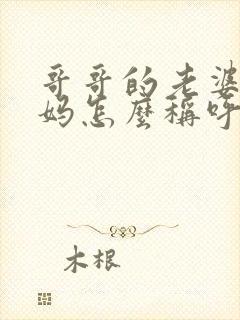 哥哥的老婆
妈怎麼稱呼
木根